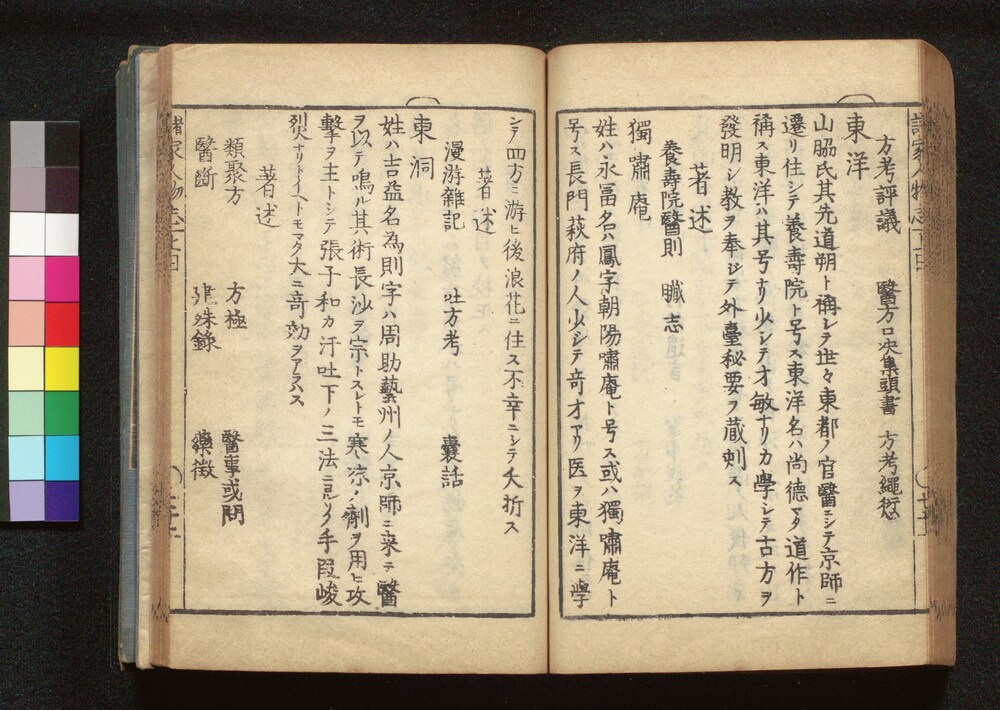 方考評議 醫方口訣集頭書 方考繩愆
東洋
山脇氏其先道朔ト稱シテ世々東都ノ官醫ニシテ京師ニ
遷リ住シテ養壽院ト号ス東洋名ハ尚德マタ道作ト
稱ス東洋ハ其号ナリ少シテ才敏ナリカ學シテ古方ヲ
發明シ教ヲ奉シテ外臺秘要ヲ蔵刻ス
著述
養壽院醫則 臓志
獨嘯庵
姓ハ永冨名ハ鳳字朝陽嘯庵ト号ス或ハ獨嘯庵ト
号ス長門萩府ノ人少シテ竒才アリ医ヲ東洋ニ學
シテ四方ニ游ヒ後浪花ニ住ス不幸ニシテ夭折ス
著述
漫游雜記 吐方考 囊話
東洞
姓ハ吉益名為則字ハ周助藝州ノ人京師ニ来テ醫
ヲ以テ鳴ル其術長沙ヲ宗トスレトモ寒凉ノ劑ヲ用ヒ攻
擊ヲ主トシテ張子和カ汗吐下ノ三法ニ
手段峻
烈ナリトイヘトモマタ大ニ竒効ヲアラハス
著述
類聚方 方極 醫事或問
醫斷 建殊錄 藥徴
諸家人物志